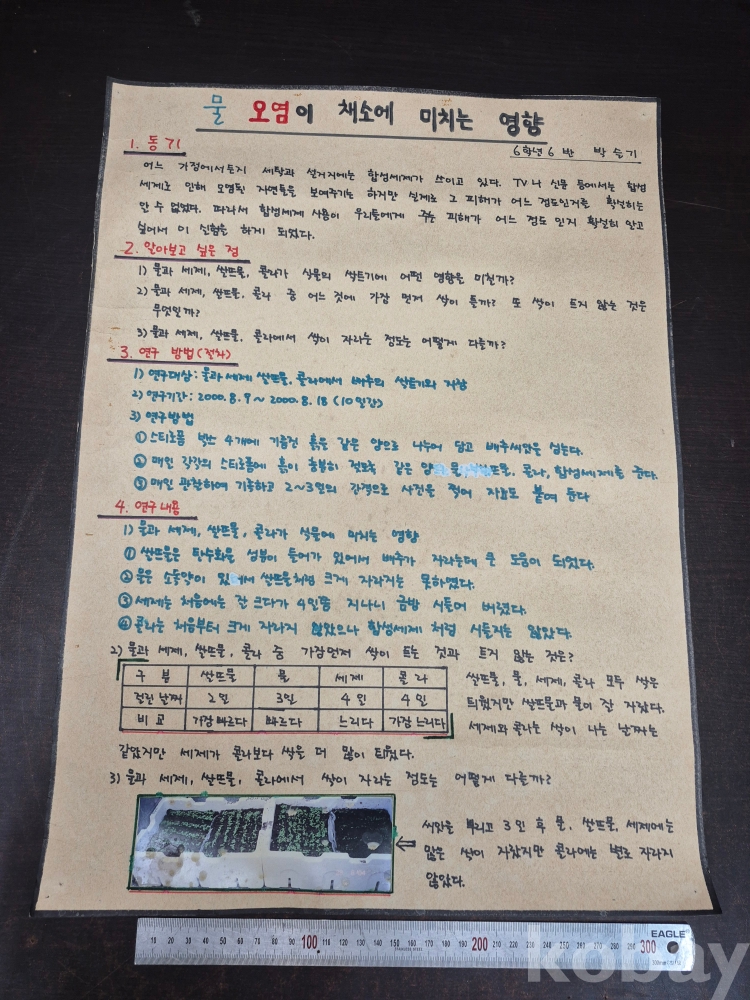 물 오염이 채소에 미치는 영향
6학년 6반 박슬기
1. 동기
어느 가정에서든지 세탁과 설거지에는 합성세제가 쓰이고 있다. TV나 신문 등에서는 합성
세제로 인해 오염된 자연들을 보여주기는 하지만 실제로 그 피해가 어느 정도인지를 확실히는
알 수 없었다. 따라서 합성세제 사용이 우리들에게 주는 피해가 어느 정도 인지 확실히 알고
싶어서 이 실험을 하게 되었다.
2. 알아보고 싶은 점
1) 물과 세제, 쌀뜨물, 콜라가 식물의 싹트기에 어떤 영향을 미칠까?
2) 물과 세제, 쌀뜨물, 콜라 중 어느 것에 가장 먼저 싹이 틀까? 또 싹이 트지 않는 것은
무엇일까?
3) 물과 세제, 쌀뜨물, 콜라에서 싹이 자라는 정도는 어떻게 다를까?
3. 연구 방법(절차)
1) 연구대상: 물과 세제 쌀뜨물, 콜라에서 배추의 싹트기와 자람
2) 연구기간: 2000.8.9~2000.8.18 (10일간)
3) 연구방법
① 스티로폼 박스 4개에 기름진 흙을 같은 양으로 나누어 담고 배추씨앗을 심는다.
② 매일 각각의 스티로폼에 흙이 충분히 젖도록 같은 양 물, 쌀뜨물, 콜라, 합성세제를 준다.
③ 매일 관찰하여 기록하고 2~3일의 간격으로 사진을 찍어 자료도 붙여 둔다
4. 연구내용
1) 물과 세제, 쌀뜨물, 콜라가 식물에 미치는 영향
① 쌀뜨물은 탄수화물 성분이 들어가 있어서 배추가 자라는데 큰 도움이 되었다.
② 물은 소독약이 있어서 쌀뜨물처럼 크게 자라지는 못하였다.
③ 세제는 처음에는 잘 크다가 4일쯤 지나니 금방 시들어 버렸다.
④ 콜라는 처음부터 크게 자라지 않았으나 합성세제 처럼 시들지는 않았다.
2) 물과 세제, 쌀뜨물, 콜라 중 가장먼저 싹이 트는 것과 트지 않는 것은?
구 분 쌀뜨물 물 세제 콜라
걸린 날짜 2일 3일 4일 4일
비교 가장 빠르다 빠르다 느리다 가장 느리다
쌀뜨물, 물, 세제, 콜라 모두 싹은
틔웠지만 쌀뜨물과 물이 잘 자랐다.
세제와 콜라는 싹이 나는 날짜는
같았지만 세제가 콜라보다 싹을 더 많이 틔웠다.
3) 물과 세제, 쌀뜨물, 콜라에서 싹이 자라는 정도는 어떻게 다를까?
씨앗을 뿌리고 3일 후 물, 쌀뜨물, 세제에는
많은 싹이 자랐지만 콜라에는 별로 자라지
않았다.
EAGLE
10 20 30 40 50 60 70 80 90 100 110 120 130 140 150 160 170 180 190 200 210 220 230 240 250 260 270 280 290 300
kobay